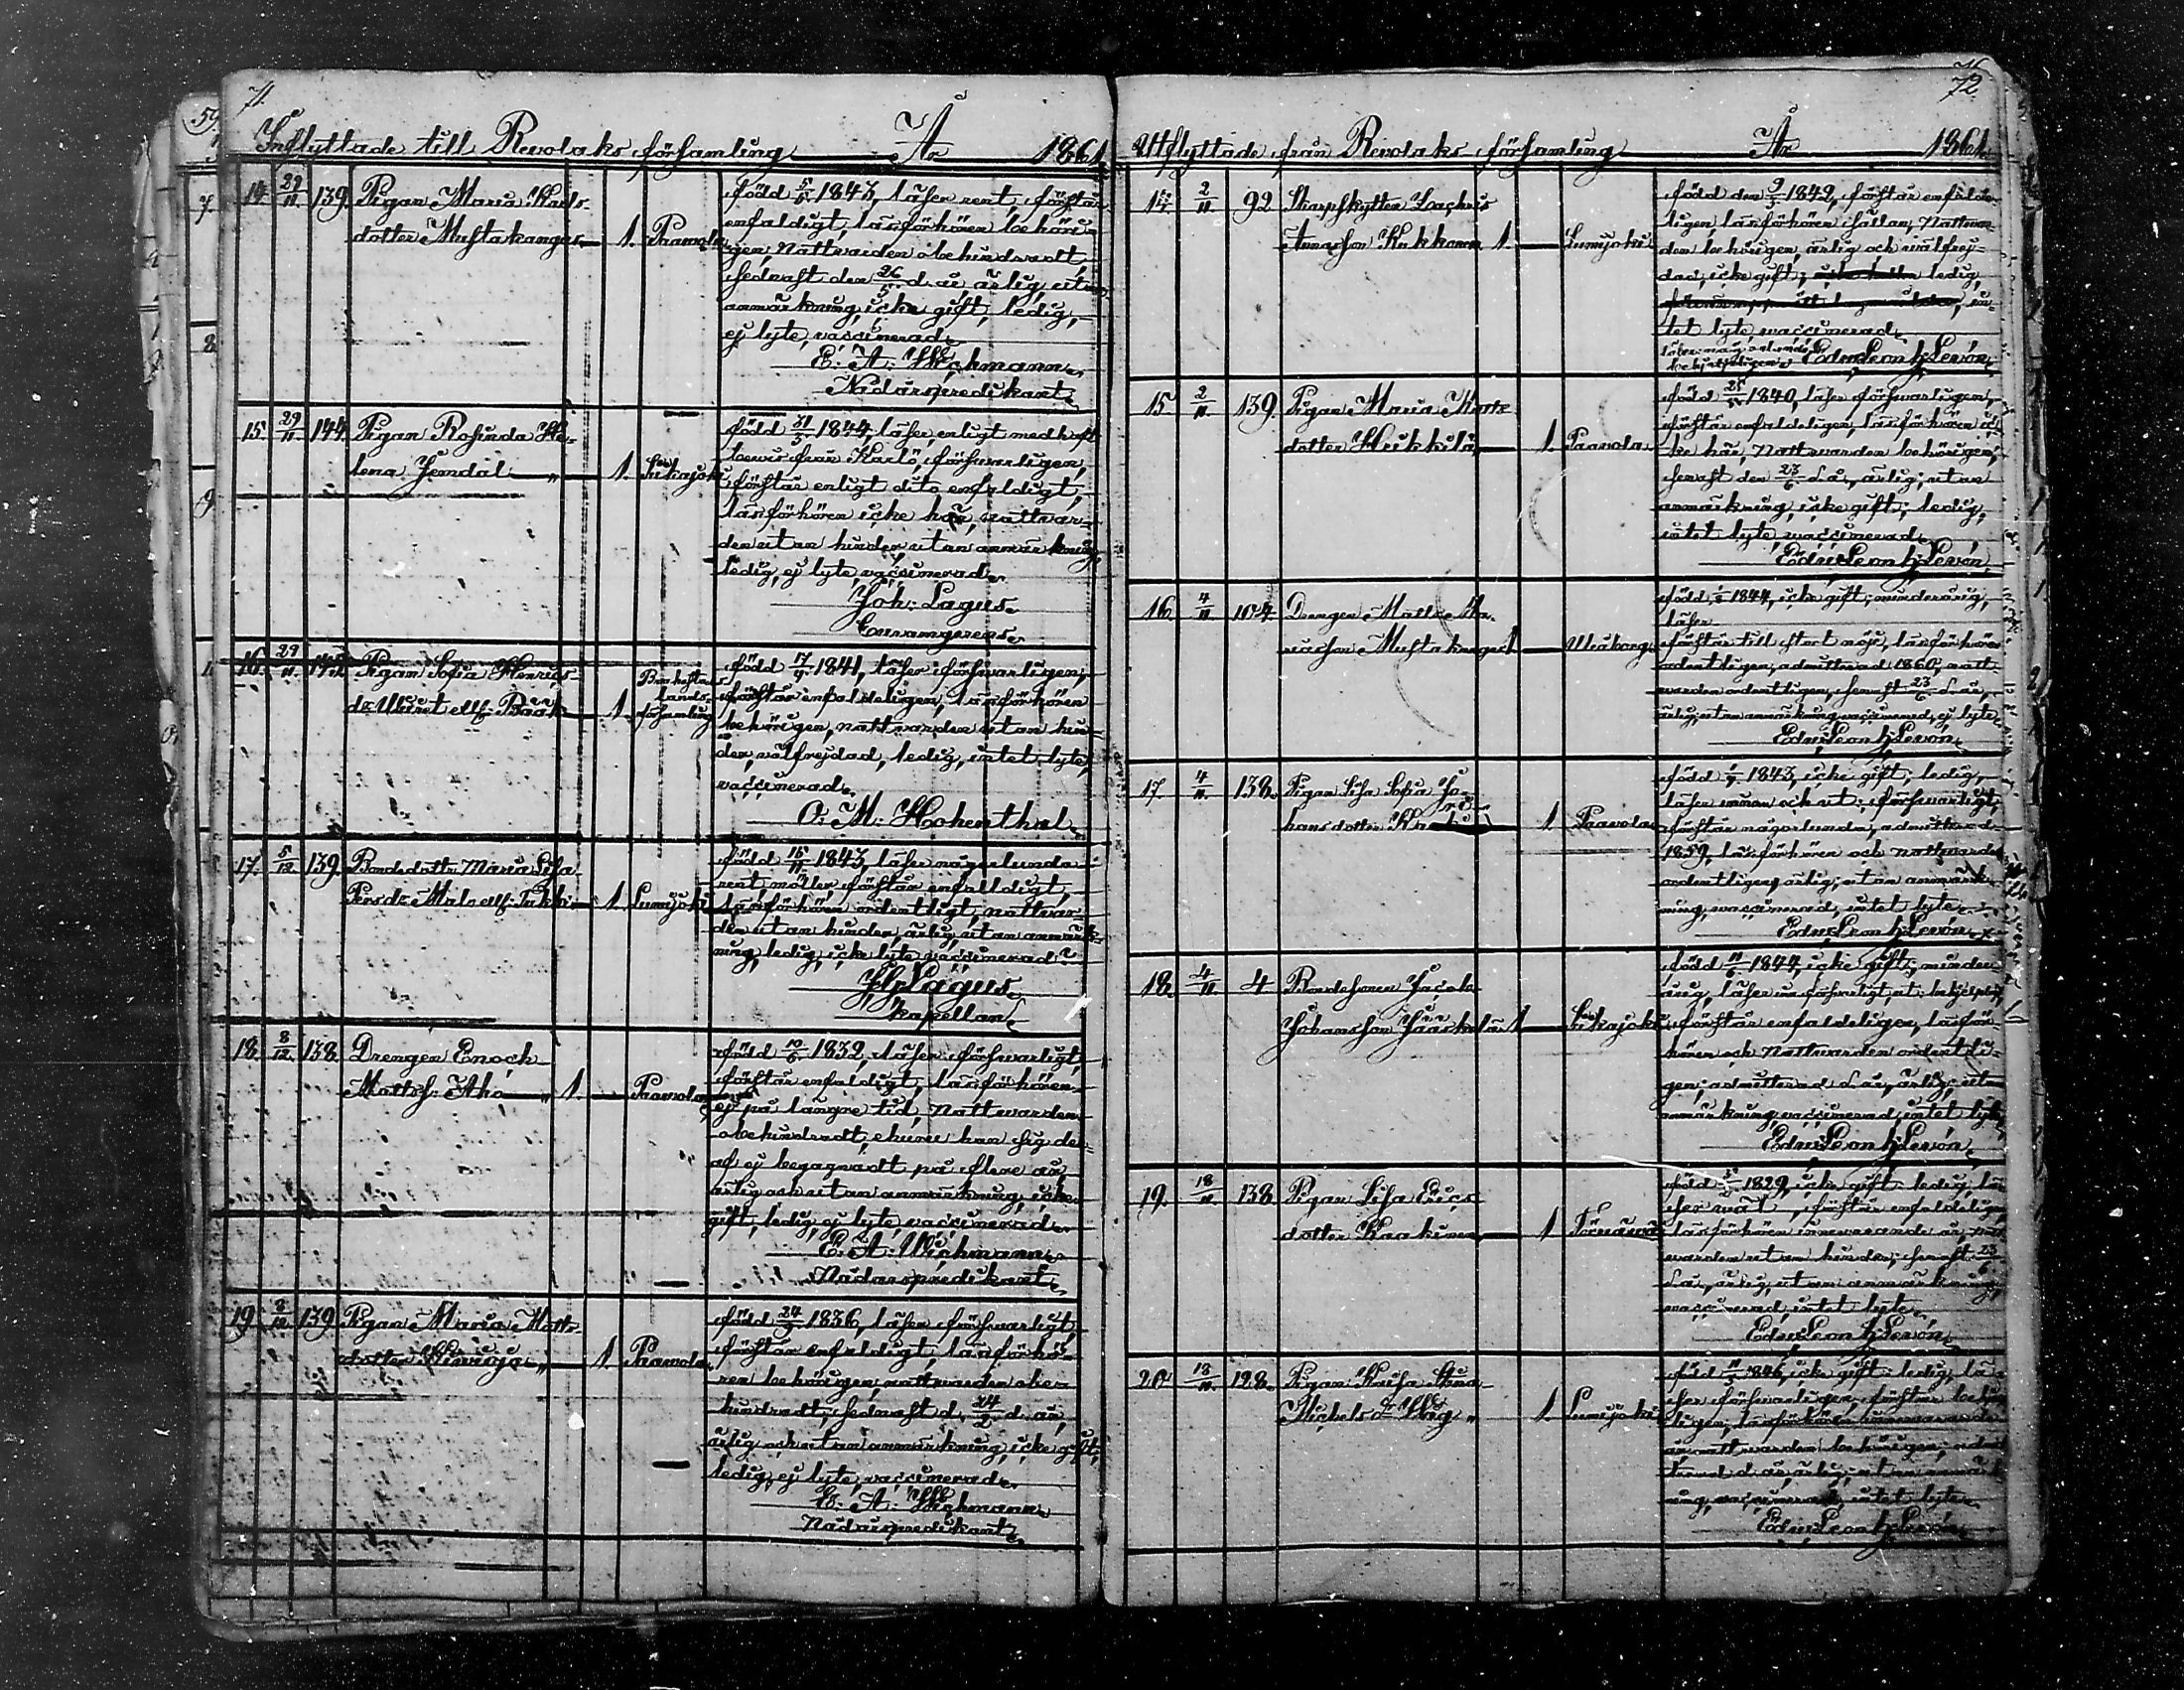 71.
Inflyttade till Revolaks församling År 1861
14. 29/11. 139. Pigan Maria Karls-
dotter Mustakangas 1. Paavola
född 5/5 1843, läser rent, förstår
enfaldigt, läsförhören behöri-
gen, nattvarden obehindradt,
sednast den 26/5 d. år, ärlig, utan
anmärkning, icke gift, ledig,
ej lyte, vaccinerad.
E. A. Wichmann.
Nådårspredikant.
15. 29/11. 144. Pigan Rosinda He-
lena Jemdal 1. Siikajoki
född 31/5 1844, läser, enligt medhaft
bevis från Karlö, försvarligen,
förstår enligt dito enfaldigt,
läsförhören icke här, nattvar-
den utan hinder, utan anmärkning,
ledig, ej lyte, vaccinerad.
Joh: Lagus.
16. 29/11. Pigan Sofia Henrics-
dr ellf: Pääk 1. Brahestads
lands-
församling
född 17/9 1841, läser försvarligen,
förstår enfaldeligen, läsförhören
behörigen, nattvarden utan hin-
der, välfrejdad, ledig, intet lyte,
vaccinerad.
C. M. Hohenthal.
17. 5/12. 139. Bondedottr. Maria Lisa
Persdr Mals ellf: Tukki 1. Lumijoki
född 15/11 1843, läser någorlunda
rent, förstår enfalldigt,
läsförhören ordentligt, nattvar-
den utan hinder, ärlig, utan anmärk-
ning, ledig, icke lyte, vaccinerad.
Lagus.
Kapellan.
18. 8/12. 138. Drengen Enoch
Mattss: Aho 1. Paavola
född 10/6 1832, läser försvarligt,
förstår enfaldigt, läsförhören
ej på längre tid, Nattvarden
obehindradt, ehuru han sig der-
af ej begagnadt på flere år,
ärlig och utan anmärkning, icke
gift, ledig, ej lyte, vaccinerad.
E. A. Wichmann.
Nådårspredikant.
19. 8/12. 139. Pigan Maria Matts-
dotter 1. Paavola
född 24/3 1836, läser försvarligt,
förstår enfaldigt, läsförhö-
ren behörigen, nattvarden obe-
hindradt, sednast d. 24/2 d. år,
ärlig och utan anmärkning, icke gift,
ledig, ej lyte, vaccinerad.
E. A. Wichmann.
Nådårspredikant.
72.
Utflyttade från Revolaks församling År 1861.
14. 2/11. 92 Skarpskytten Zachris
Kukkonen 1 Lumijoki
född den 9/5 1842, förstår enfalde-
ligen, läsförhören sällan, Nattvar-
den behörigen, ärlig och välfrej-
dad, icke gift, ledig,
in-
tet lyte, vaccinerad.
15 2/11. 139 Pigan Maria Matts-
dotter Heikkilä 1. Paavola
född 25/ 1840, läser försvarligen,
förstår enfaldeligen, läsförhören ic-
ke här, Nattvarden behörigen,
senast den 23/6 d. år, ärlig, utan
anmärkning, icke gift, ledig,
intet lyte, vaccinerad.
16. 4/11. 104. Drengen Matts
Mustakangas 1 Uleåborg
född 1844, icke gift, minderårig,
läser
förstår till stort nöje, läsförhören
ordentligen, admitterad 1860, natt-
varden ordentligen, senast 23/6 d. år,
ärlig, utan anmärkning, vaccinerad, ej lyte.
17. 4/11. 138. Pigan Lisa Sofia Jo-
hansdotter 1 Paavola
född 1843, icke gift, ledig,
läser innan och ut: försvarligt,
förstår någorlunda, admitterad
1859, läsförhören och nattvarden
ordentligen, ärlig, utan anmärk-
ning, vaccinerad, intet lyte.
18. 4/11. 4 Bondesonen Jacob
Johansson Jääskelä 1 Siikajoki
född 11/6 1844, icke gift, minder-
årig, läser
förstår enfaldeligen, läsför-
hören och Nattvarden ordentli-
gen, admitterad d. år, ärlig, utan
anmärkning, vaccinerad, intet lyte.
19. 18/11. 138. Pigan Lisa Erics-
dotter Kaakinen 1
född 1829, icke gift, ledig, lä-
ser väl, förstår enfaldeligen
läsförhören innevarande år, natt-
varden utan hinder, senast 23/6
d. år, ärlig, utan anmärkning,
vaccinerad, intet lyte.
20. 18/11. 128. Pigan Kaisa Stina
Michelsdr 1. Lumijoki
född 1846, icke gift, ledig, lä-
ser försvarligen, förstår
läsförhören innevarande
år, nattvarden behörigen,
d. år, ärlig, utan anmärk-
ning, vaccinerad, intet lyte.